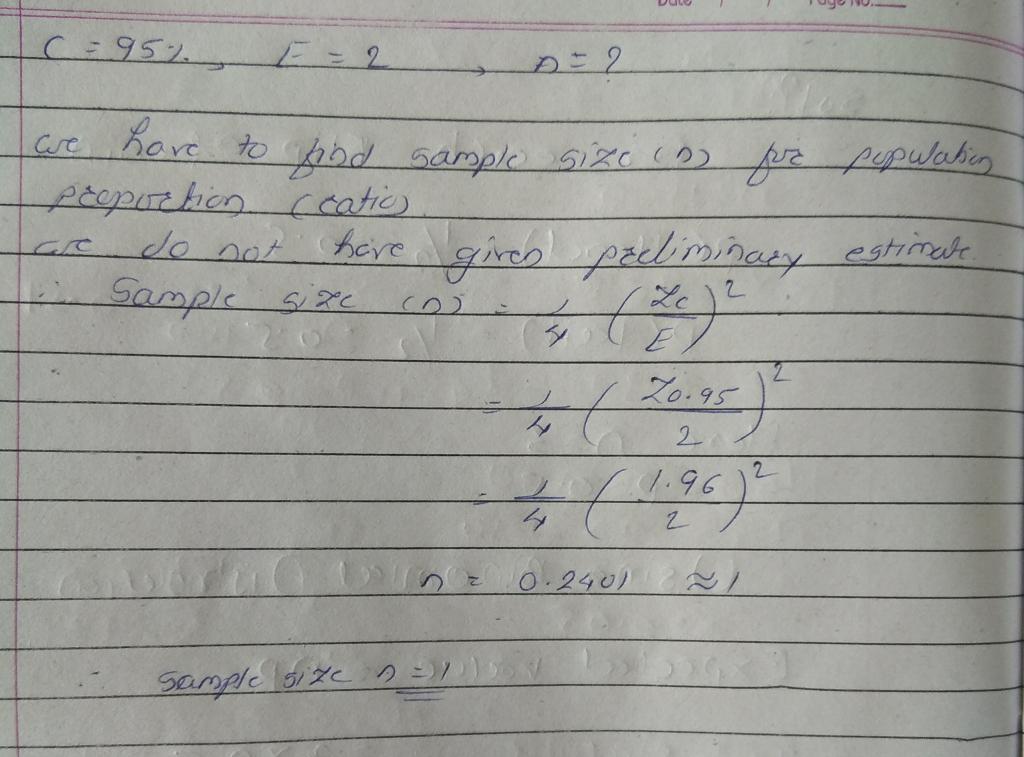 Date / / Page No.
C = 95%, E = 2, n = ?
we have to find sample size (n) for population
proportion (ratio).
we do not have given preliminary estimate.
∴ Sample size (n) = 1/4 (Zc/E)²
= 1/4 (Z0.95/2)²
= 1/4 (1.96/2)²
n = 0.2401 ≈ 1
∴ sample size n = 1